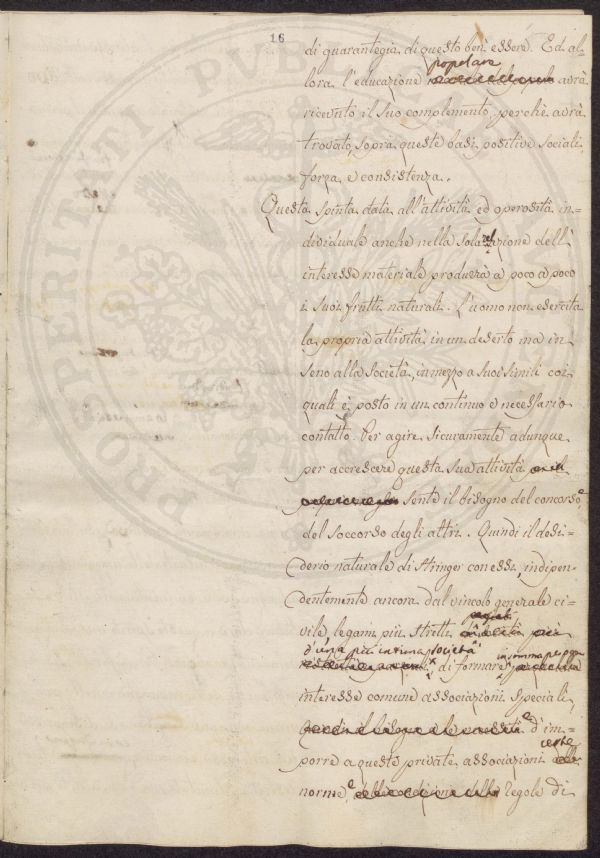 16
di guarantegia di questo ben essere. Ed al-
lora l'educazione popolare avrà
ricevuto il suo complemento, perchè avrà
trovato sopra queste basi positive sociali
forza e consistenza.
Questa spinta data all'attività ed operosità in-
dividuale anche nella sola azione dell'
interesse materiale produrrà a poco a poco
i suoi frutti naturali. L'uomo non esercita
la propria attività in un deserto ma in
seno alla società, in mezzo a suoi simili coi
quali è posto in un continuo e necessario
contatto. Per agire sicuramente adunque
per accrescere questa sua attività
sente il bisogno del concorso, e
del soccorso degli altri. Quindi il desi-
derio naturale di stringer con essi, indipen-
dentemente ancora dal vincolo generale ci-
vile, legami più stretti
d'una più intima società
di formare insomma per
interesse comune associazioni speciali,
e d'im-
porre a queste private associazioni certe
norme, e regole di
PROSPERITATI PUBLICAE